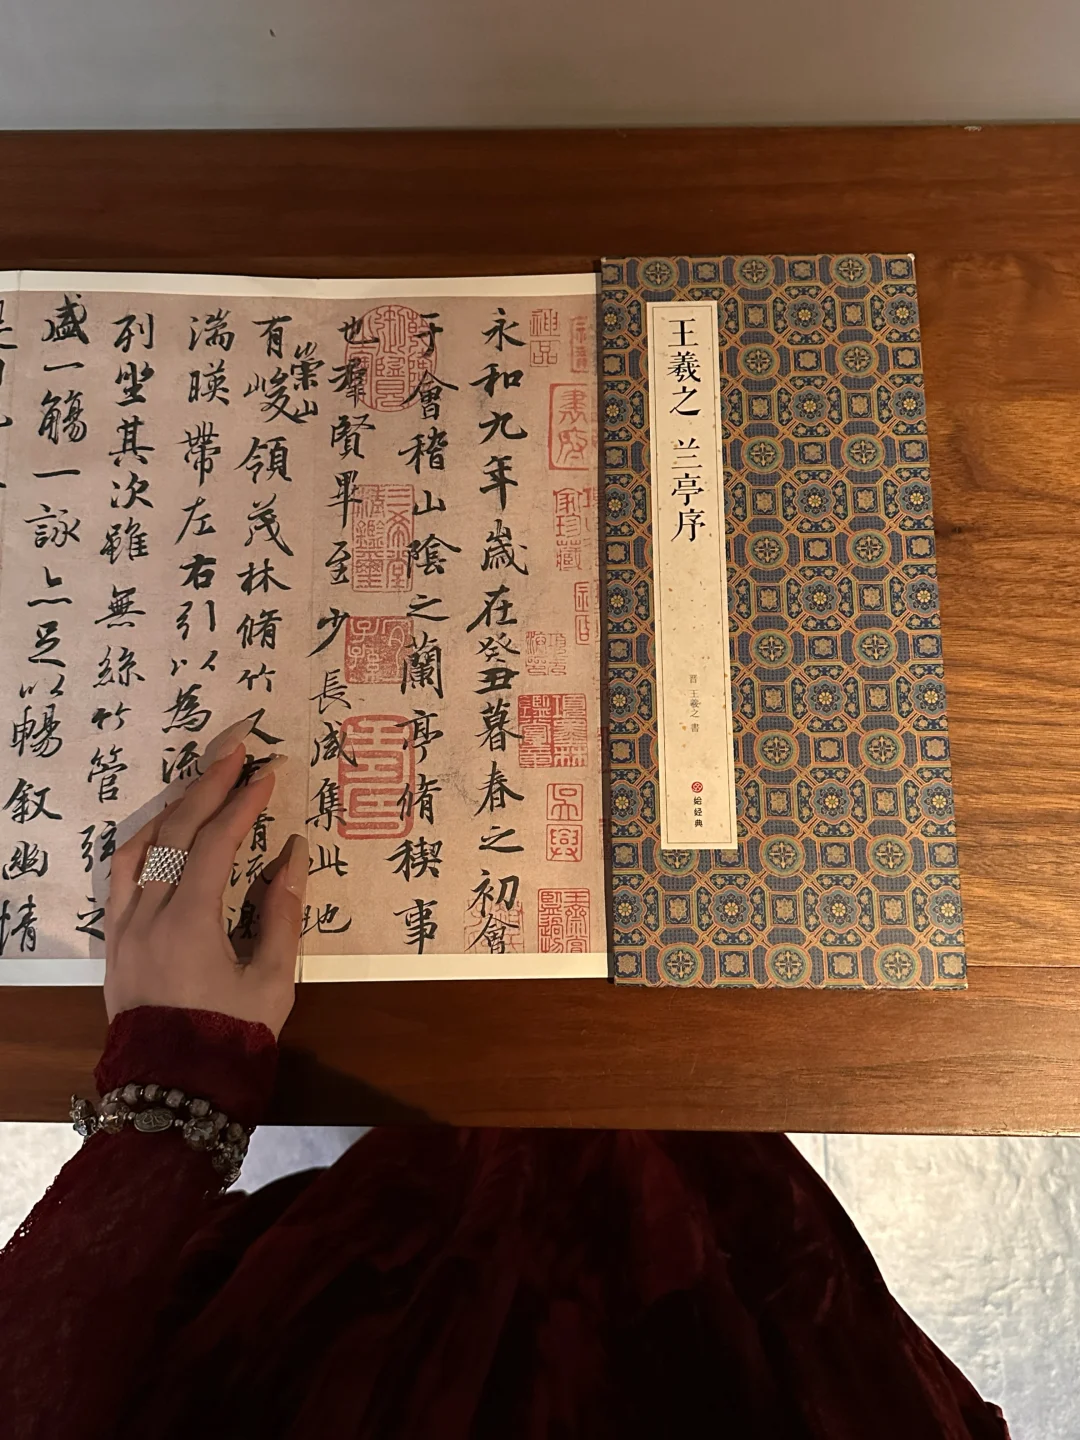 王羲之 兰亭序
晋 王羲之 書
给经典
永和九年歲在癸丑暮春之初會
于會稽山陰之蘭亭脩稧事
也羣賢畢至少長咸集此地
有崇山峻領茂林脩竹又有清流激
湍暎帶左右引以為流
列坐其次雖無絲竹管弦之
盛一觴一詠亦足以暢叙幽情
書府
家珍藏